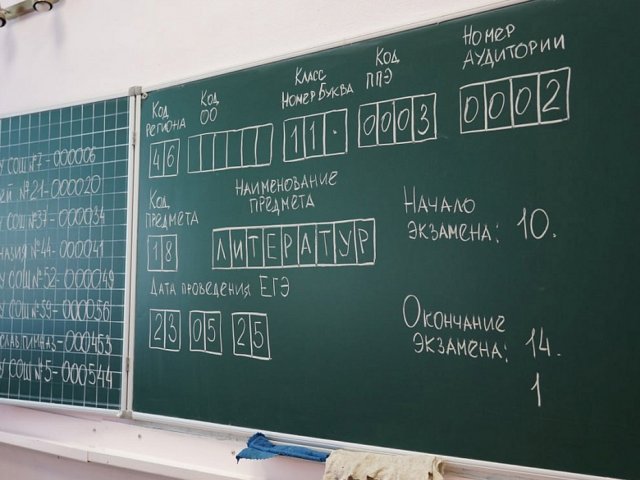 СОШ №7-000006
ЕЙ №21-000020
СОШ №37-000034
НАЗИЯ №44-000041
У СОШ №52-000049
У СОШ №59-000056
СЛАВ ГИМНАЗ-000453
У СОШ №5-000544
Код региона
46
Код ОО
Класс
Номер Буква
11.
Код ППЭ
0003
Номер аудитории
0002
Код предмета
18
Наименование предмета
ЛИТЕРАТУР
Дата проведения ЕГЭ
23 05 25
Начало экзамена: 10.
Окончание экзамена: 14.
1